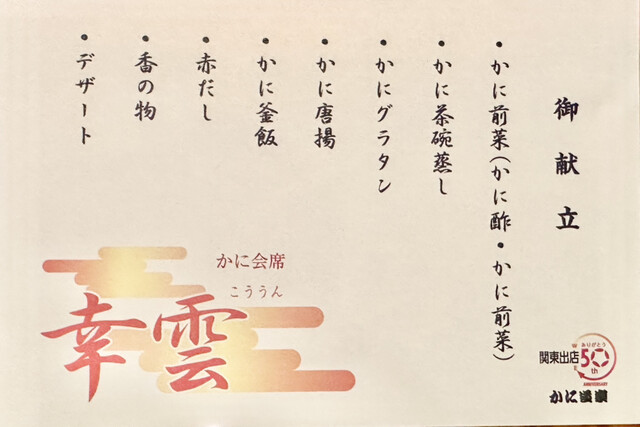 御献立
・かに前菜(かに酢・かに前菜)
・かに茶碗蒸し
・かにグラタン
・かに唐揚
・かに釜飯
・赤だし
・香の物
・デザート
かに会席
こううん
幸雲
ありがとう
関東出店50th
ANNIVERSARY
かに道楽